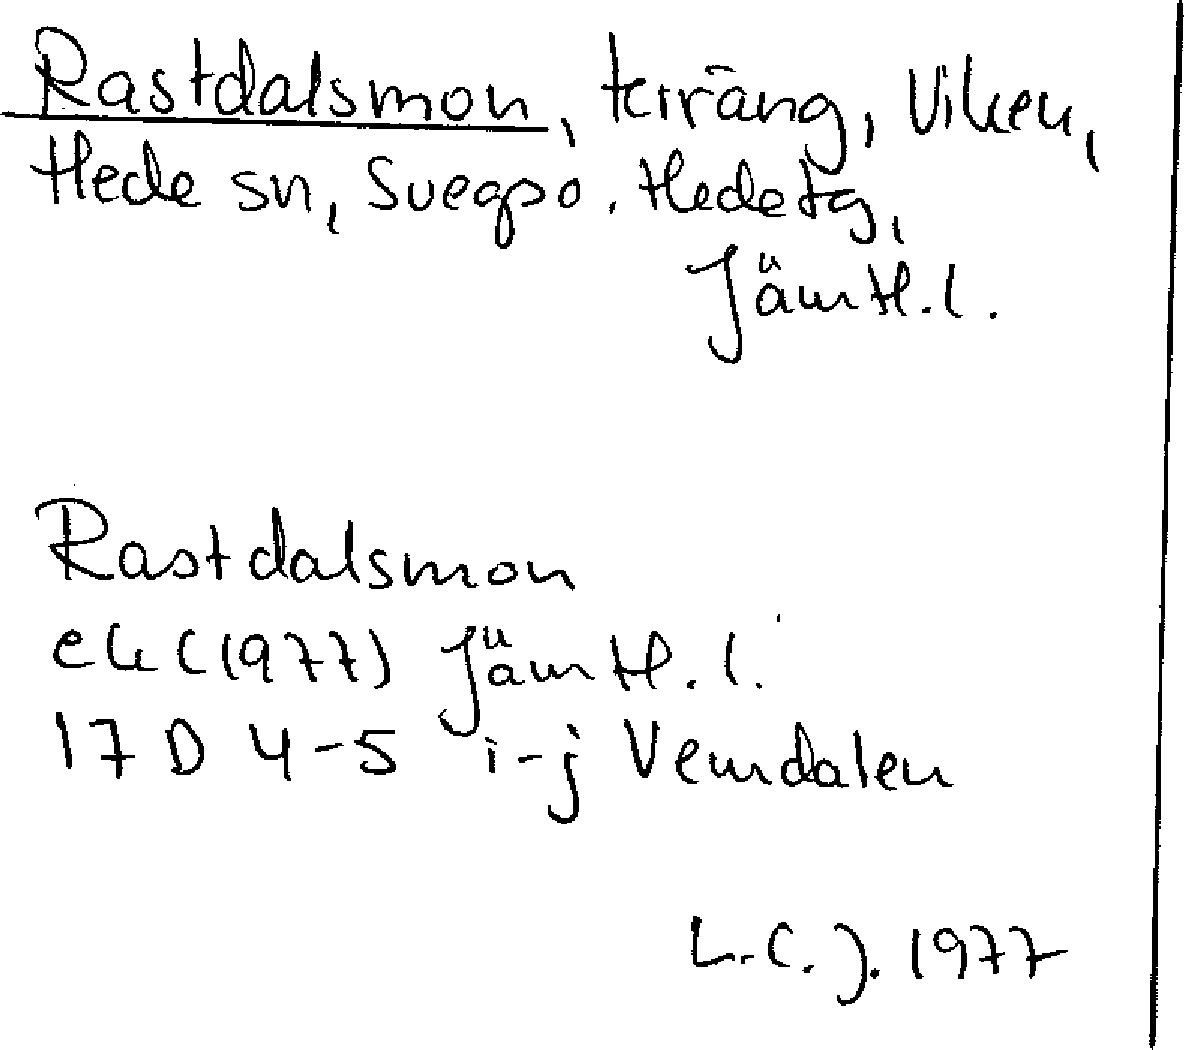 Rastdalsmon, terräng, Viken,
Hede sn, Svegs po. Hede tg,
Jämtl. l.
Rastdalsmon
ek (1977) Jämtl. l.
17 D 4-5 i-j Vemdalen
L.C.J. 1977